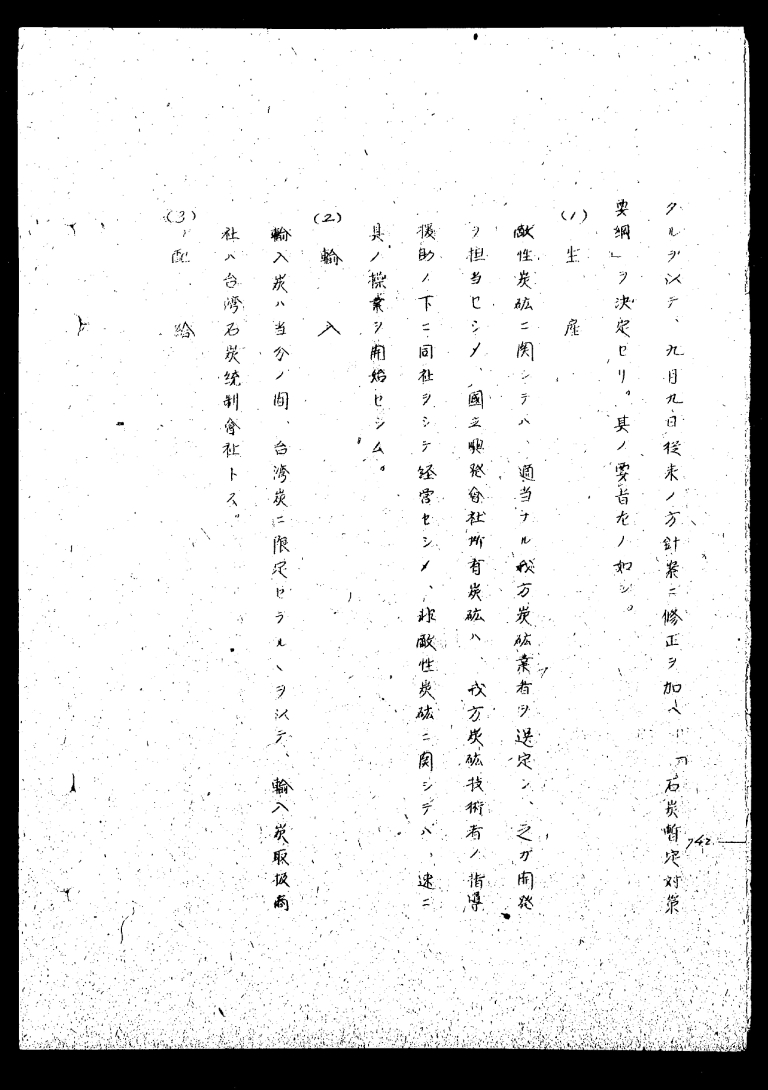 タルヲ以テ、九月九日従来ノ方針案ニ修正ヲ加ヘ「石炭暫定対策
要綱」ヲ決定セリ。其ノ要旨左ノ如シ。
(1) 生産
敵性炭砿ニ関シテハ、適当ナル我方炭砿業者ヲ選定シ、之ガ開発
ヲ担当セシメ、國立興発会社所有炭砿ハ、我方炭砿技術者ノ指導
援助ノ下ニ同社ヲシテ経営セシメ、非敵性炭砿ニ関シテハ、速ニ
其ノ操業ヲ開始セシム。
(2) 輸入
輸入炭ハ当分ノ間、台湾炭ニ限定セラルヽヲ以テ、輸入炭取扱商
社ハ台湾石炭統制會社トス。
(3) 配給
742